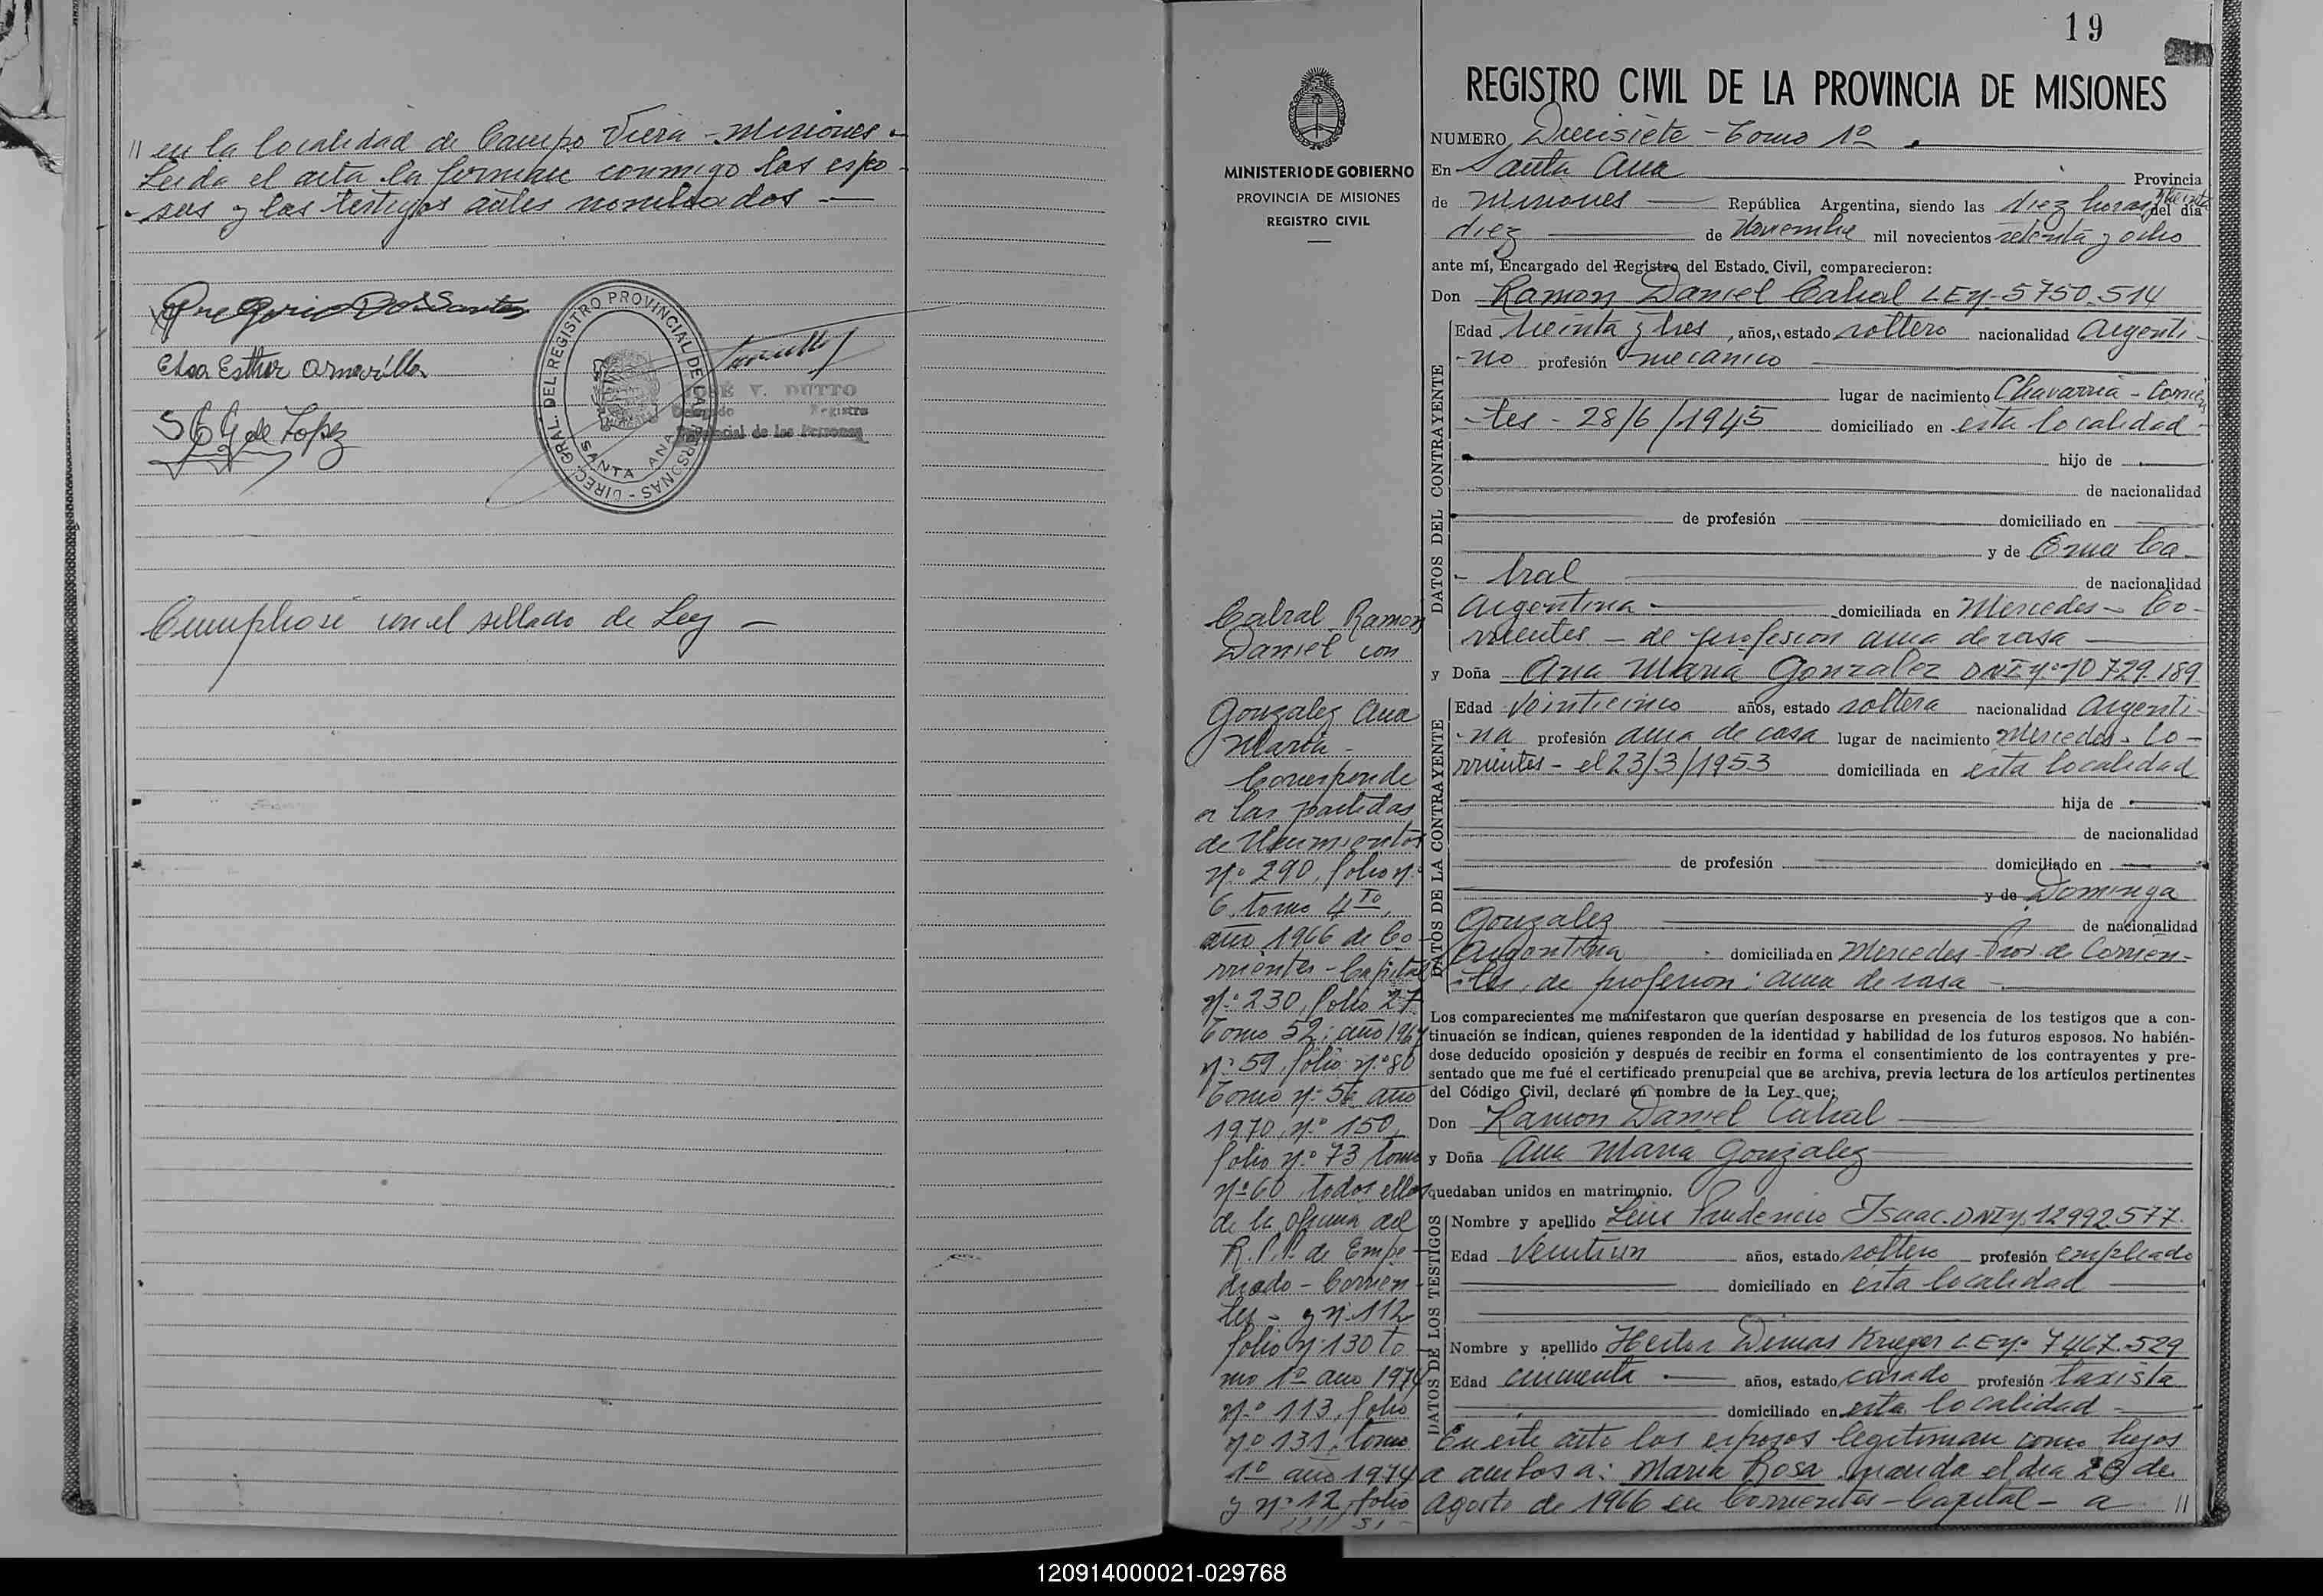 // en la localidad de Campo Viera - Misiones -
Leida el acta la firman conmigo los espo-
-sos y los testigos antes nombrados -
Gregorio Dos Santos
Elsa Esther Amarilla
de Lopez
DIREC. GRAL. DEL REGISTRO PROVINCIAL DE LAS PERSONAS - SANTA ANA
JOSÉ V. DUTTO
Delegado Registro
Provincial de las Personas
Cumpliose con el sellado de Ley -
19
MINISTERIO DE GOBIERNO
PROVINCIA DE MISIONES
REGISTRO CIVIL
Cabral Ramon
Daniel con
Gonzalez Ana
Maria -
Corresponde
a las partidas
de Nacimientos
Nº 290, folio Nº
6, tomo 4to,
año 1966 de Co-
rrientes - Capital
Nº 230, folio 27
Tomo 52, año 1967
Nº 59, folio Nº 80
Tomo Nº 56 año
1970, Nº 150,
folio Nº 73 tomo
Nº 60 todos ellos
de la oficina del
R.P.P. de Empe-
drado - Corrien-
tes - y Nº 112
folio Nº 130 to-
mo 1º año 1974
Nº 113, folio
Nº 131, tomo
1º año 1974
y Nº 12, folio
REGISTRO CIVIL DE LA PROVINCIA DE MISIONES
NUMERO Diecisiete - Tomo 1º
En Santa Ana Provincia
de Misiones República Argentina, siendo las diez horas treinta del día
diez de Noviembre mil novecientos setenta y ocho
ante mí, Encargado del Registro del Estado Civil, comparecieron:
Don Ramon Daniel Cabral LE Nº 5750.514
DATOS DEL CONTRAYENTE
Edad treinta y tres, años, estado soltero nacionalidad Argenti-
-no profesión mecanico
lugar de nacimiento Chavarria - Corrien
-tes - 28/6/1945 domiciliado en esta localidad -
hijo de
de nacionalidad
de profesión domiciliado en
y de Ema Ca-
-bral de nacionalidad
Argentina domiciliada en Mercedes - Co-
rrientes - de profesion ama de casa
y Doña Ana Maria Gonzalez DNI Nº 10 729.189
DATOS DE LA CONTRAYENTE
Edad Veinticinco años, estado soltera nacionalidad Argenti-
-na profesión ama de casa lugar de nacimiento Mercedes - Co-
rrientes - el 23/3/1953 domiciliada en esta localidad
hija de
de nacionalidad
de profesión domiciliado en
y de Dominga
Gonzalez de nacionalidad
Argentina domiciliada en Mercedes - Prov. de Corrien-
-tes, de profesion: ama de casa
Los comparecientes me manifestaron que querían desposarse en presencia de los testigos que a con-
tinuación se indican, quienes responden de la identidad y habilidad de los futuros esposos. No habién-
dose deducido oposición y después de recibir en forma el consentimiento de los contrayentes y pre-
sentado que me fué el certificado prenupcial que se archiva, previa lectura de los artículos pertinentes
del Código Civil, declaré en nombre de la Ley que:
Don Ramon Daniel Cabral
y Doña Ana Maria Gonzalez
quedaban unidos en matrimonio.
DATOS DE LOS TESTIGOS
Nombre y apellido Luis Prudencio Isaac. DNI Nº 12992.577.
Edad Veintiun años, estado soltero profesión empleado
domiciliado en esta localidad
Nombre y apellido Hector Dimas Kruger L.E Nº 7467.529
Edad cincuenta años, estado casado profesión taxista
domiciliado en esta localidad
En este acto los esposos legitiman como hijos
a ambos a: Maria Rosa, nacida el dia 28 de
Agosto de 1966 en Corrientes - Capital - a //
120914000021-029768